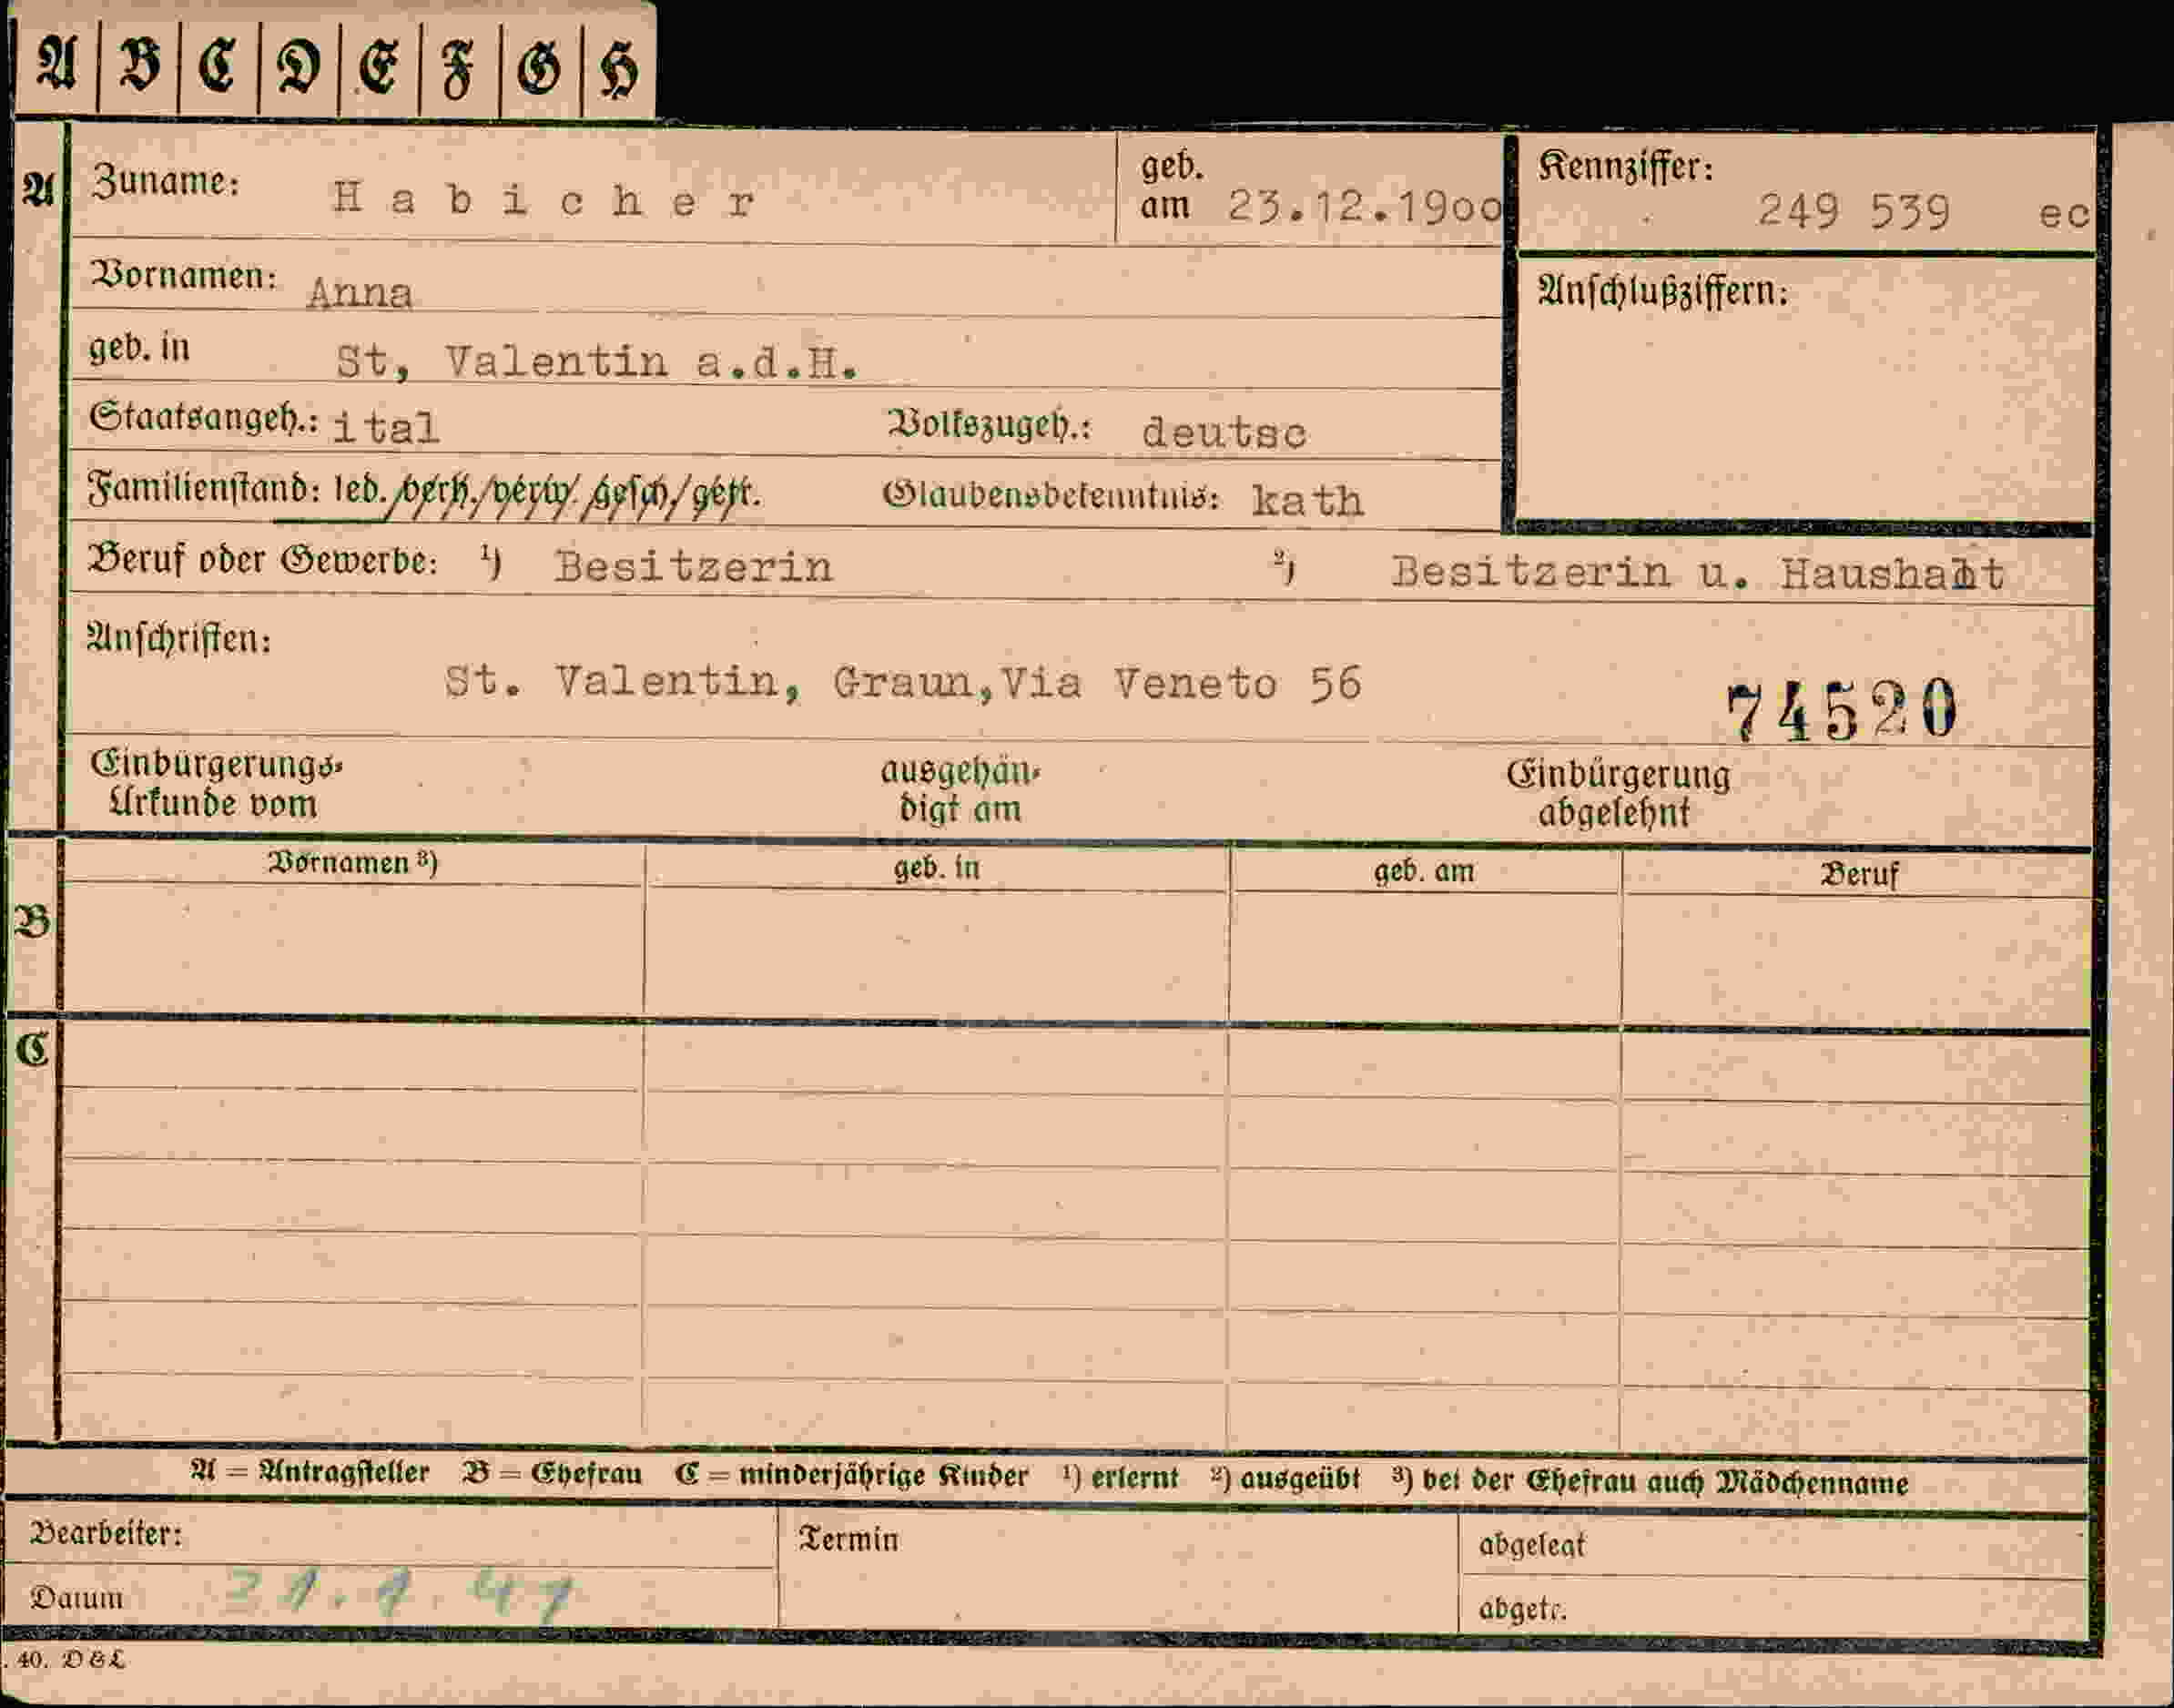 A B C D E F G H
A Zuname: Habicher geb. am 23.12.19oo Kennziffer: 249 539 ec
Vornamen: Anna Anschlußziffern:
geb. in St, Valentin a.d.H.
Staatsangeh.: ital Volkszugeh.: deutsc
Familienstand: led./verh./verw./gesch./getr. Glaubensbekenntnis: kath
Beruf oder Gewerbe: ¹) Besitzerin ²) Besitzerin u. Haushalt
Anschriften:
St. Valentin, Graun,Via Veneto 56
74520
Einbürgerungs- ausgehän- Einbürgerung
Urkunde vom digt am abgelehnt
Vornamen ³) geb. in geb. am Beruf
B
C
A = Antragsteller B = Ehefrau C = minderjährige Kinder ¹) erlernt ²) ausgeübt ³) bei der Ehefrau auch Mädchenname
Bearbeiter: Termin abgelegt
Datum 31.1.41 abgetr.
. 40. D & L